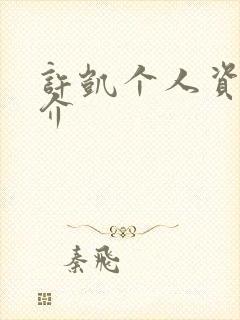 許凱个人資
介
秦飛